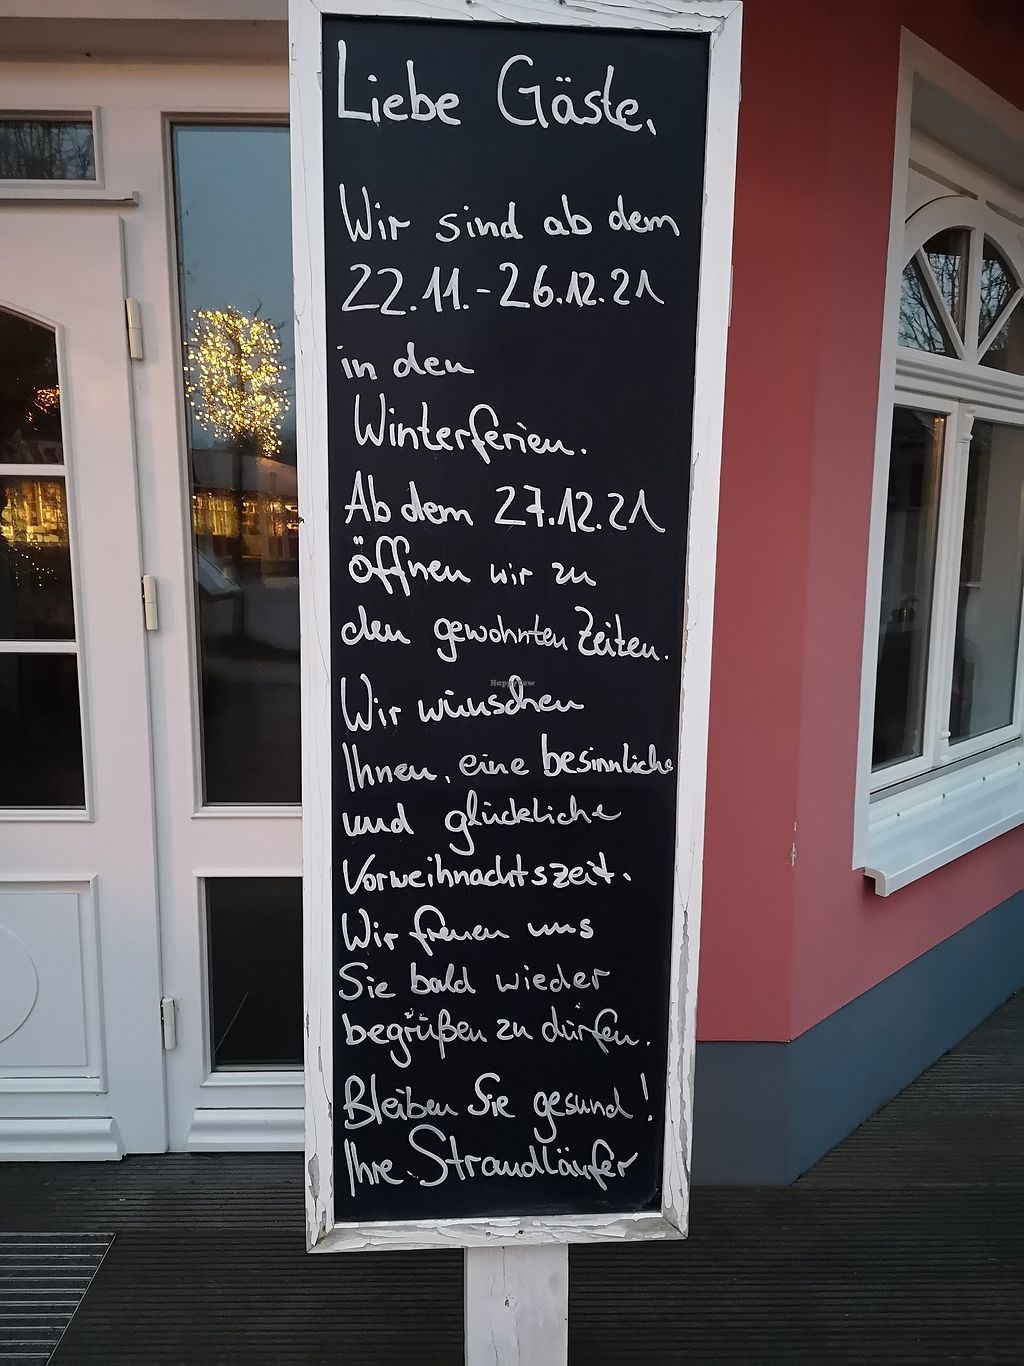 Liebe Gäste,
Wir sind ab dem
22.11.-26.12.21
in den
Winterferien.
Ab dem 27.12.21
Öffnen wir zu
den gewohnten Zeiten.
HappyCow
Wir wünschen
Ihnen, eine besinnliche
und glückliche
Vorweihnachtszeit.
Wir freuen uns
Sie bald wieder
begrüßen zu dürfen.
Bleiben Sie gesund!
Ihre Strandläufer